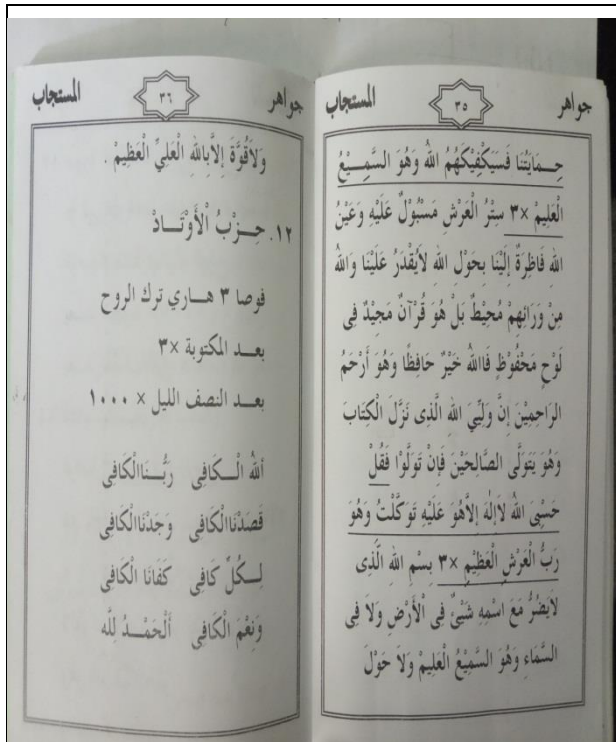 جواهر ٣٥ المستجاب
حِمَايَتُنَا فَسَيَكْفِيْكَهُمُ اللهُ وَهُوَ السَّمِيْعُ
الْعَلِيْمُ ×٣ سِتْرُ الْعَرْشِ مَسْبُوْلٌ عَلَيْهِ وَعَيْنُ
اللهِ فَاظِرَةٌ إِلَيْنَا بِحَوْلِ اللهِ لاَيُقْدَرُ عَلَيْنَا وَاللهُ
مِنْ وَرَائِهِمْ مُحِيْطٌ بَلْ هُوَ قُرْآنٌ مَجِيْدٌ فِى
لَوْحٍ مَحْفُوْظٍ فَاللهُ خَيْرٌ حَافِظًا وَهُوَ أَرْحَمُ
الرَاحِمِيْنَ إِنَّ وَلِيِّيَ اللهِ الَّذِى نَزَّلَ الْكِتَابَ
وَهُوَ يَتَوَلَّى الصَّالِحَيْنَ فَإِنْ تَوَلَّوْا فَقُلْ
حَسْبِىَ اللهُ لاَإِلٰهَ إِلاَّهُوَ عَلَيْهِ تَوَكَّلْتُ وَهُوَ
رَبُّ الْعَرْشِ الْعَظِيْمِ ×٣ بِسْمِ اللهِ الَّذِى
لاَيَضُرُّ مَعَ اسْمِهِ شَيْئٌ فِى الْأَرْضِ وَلاَ فِى
السَّمَاءِ وَهُوَ السَّمِيْعُ الْعَلِيمْ وَلاَ حَوْلَ
جواهر ٣٦ المستجاب
وَلاَقُوَّةَ إِلاَّبِاللهِ الْعَلِيِّ الْعَظِيْمْ .
١٢. حِزْبُ الْأَوْتَادْ
فوصا ٣ هاري ترك الروح
بعد المكتوبة ×٣
بعد النصف الليل × ١٠٠٠
اَللهُ الْكَافِى رَبُّنَاالْكَافِى
قَصَدْنَاالْكَافِى وَجَدْنَاالْكَافِى
لِكُلٍّ كَافِى كَفَانَا الْكَافِى
وَنِعْمَ الْكَافِى اَلْحَمْدُ لِلّٰه